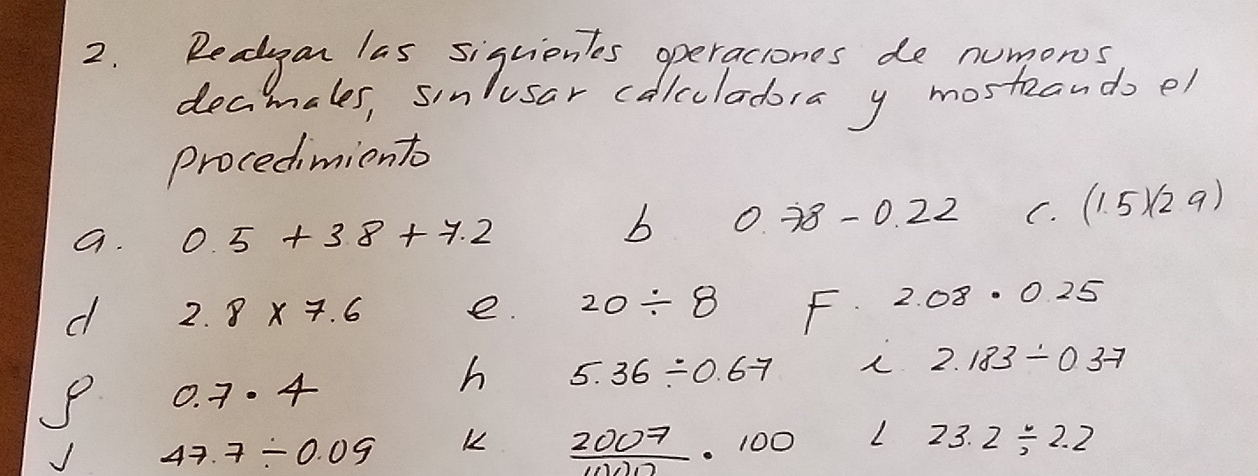 2. Realizar las siguientes operaciones de numeros
decimales, sin usar calculadora y mostrando el
procedimiento
a. 0.5 + 3.8 + 7.2 b 0.78 - 0.22 c. (1.5)(2.9)
d 2.8 x 7.6 e. 20 ÷ 8 F. 2.08 · 0.25
g 0.7 · 4 h 5.36 ÷ 0.67 i 2.183 ÷ 0.37
J 47.7 ÷ 0.09 k 2007/1000 · 100 l 23.2 ÷ 2.2